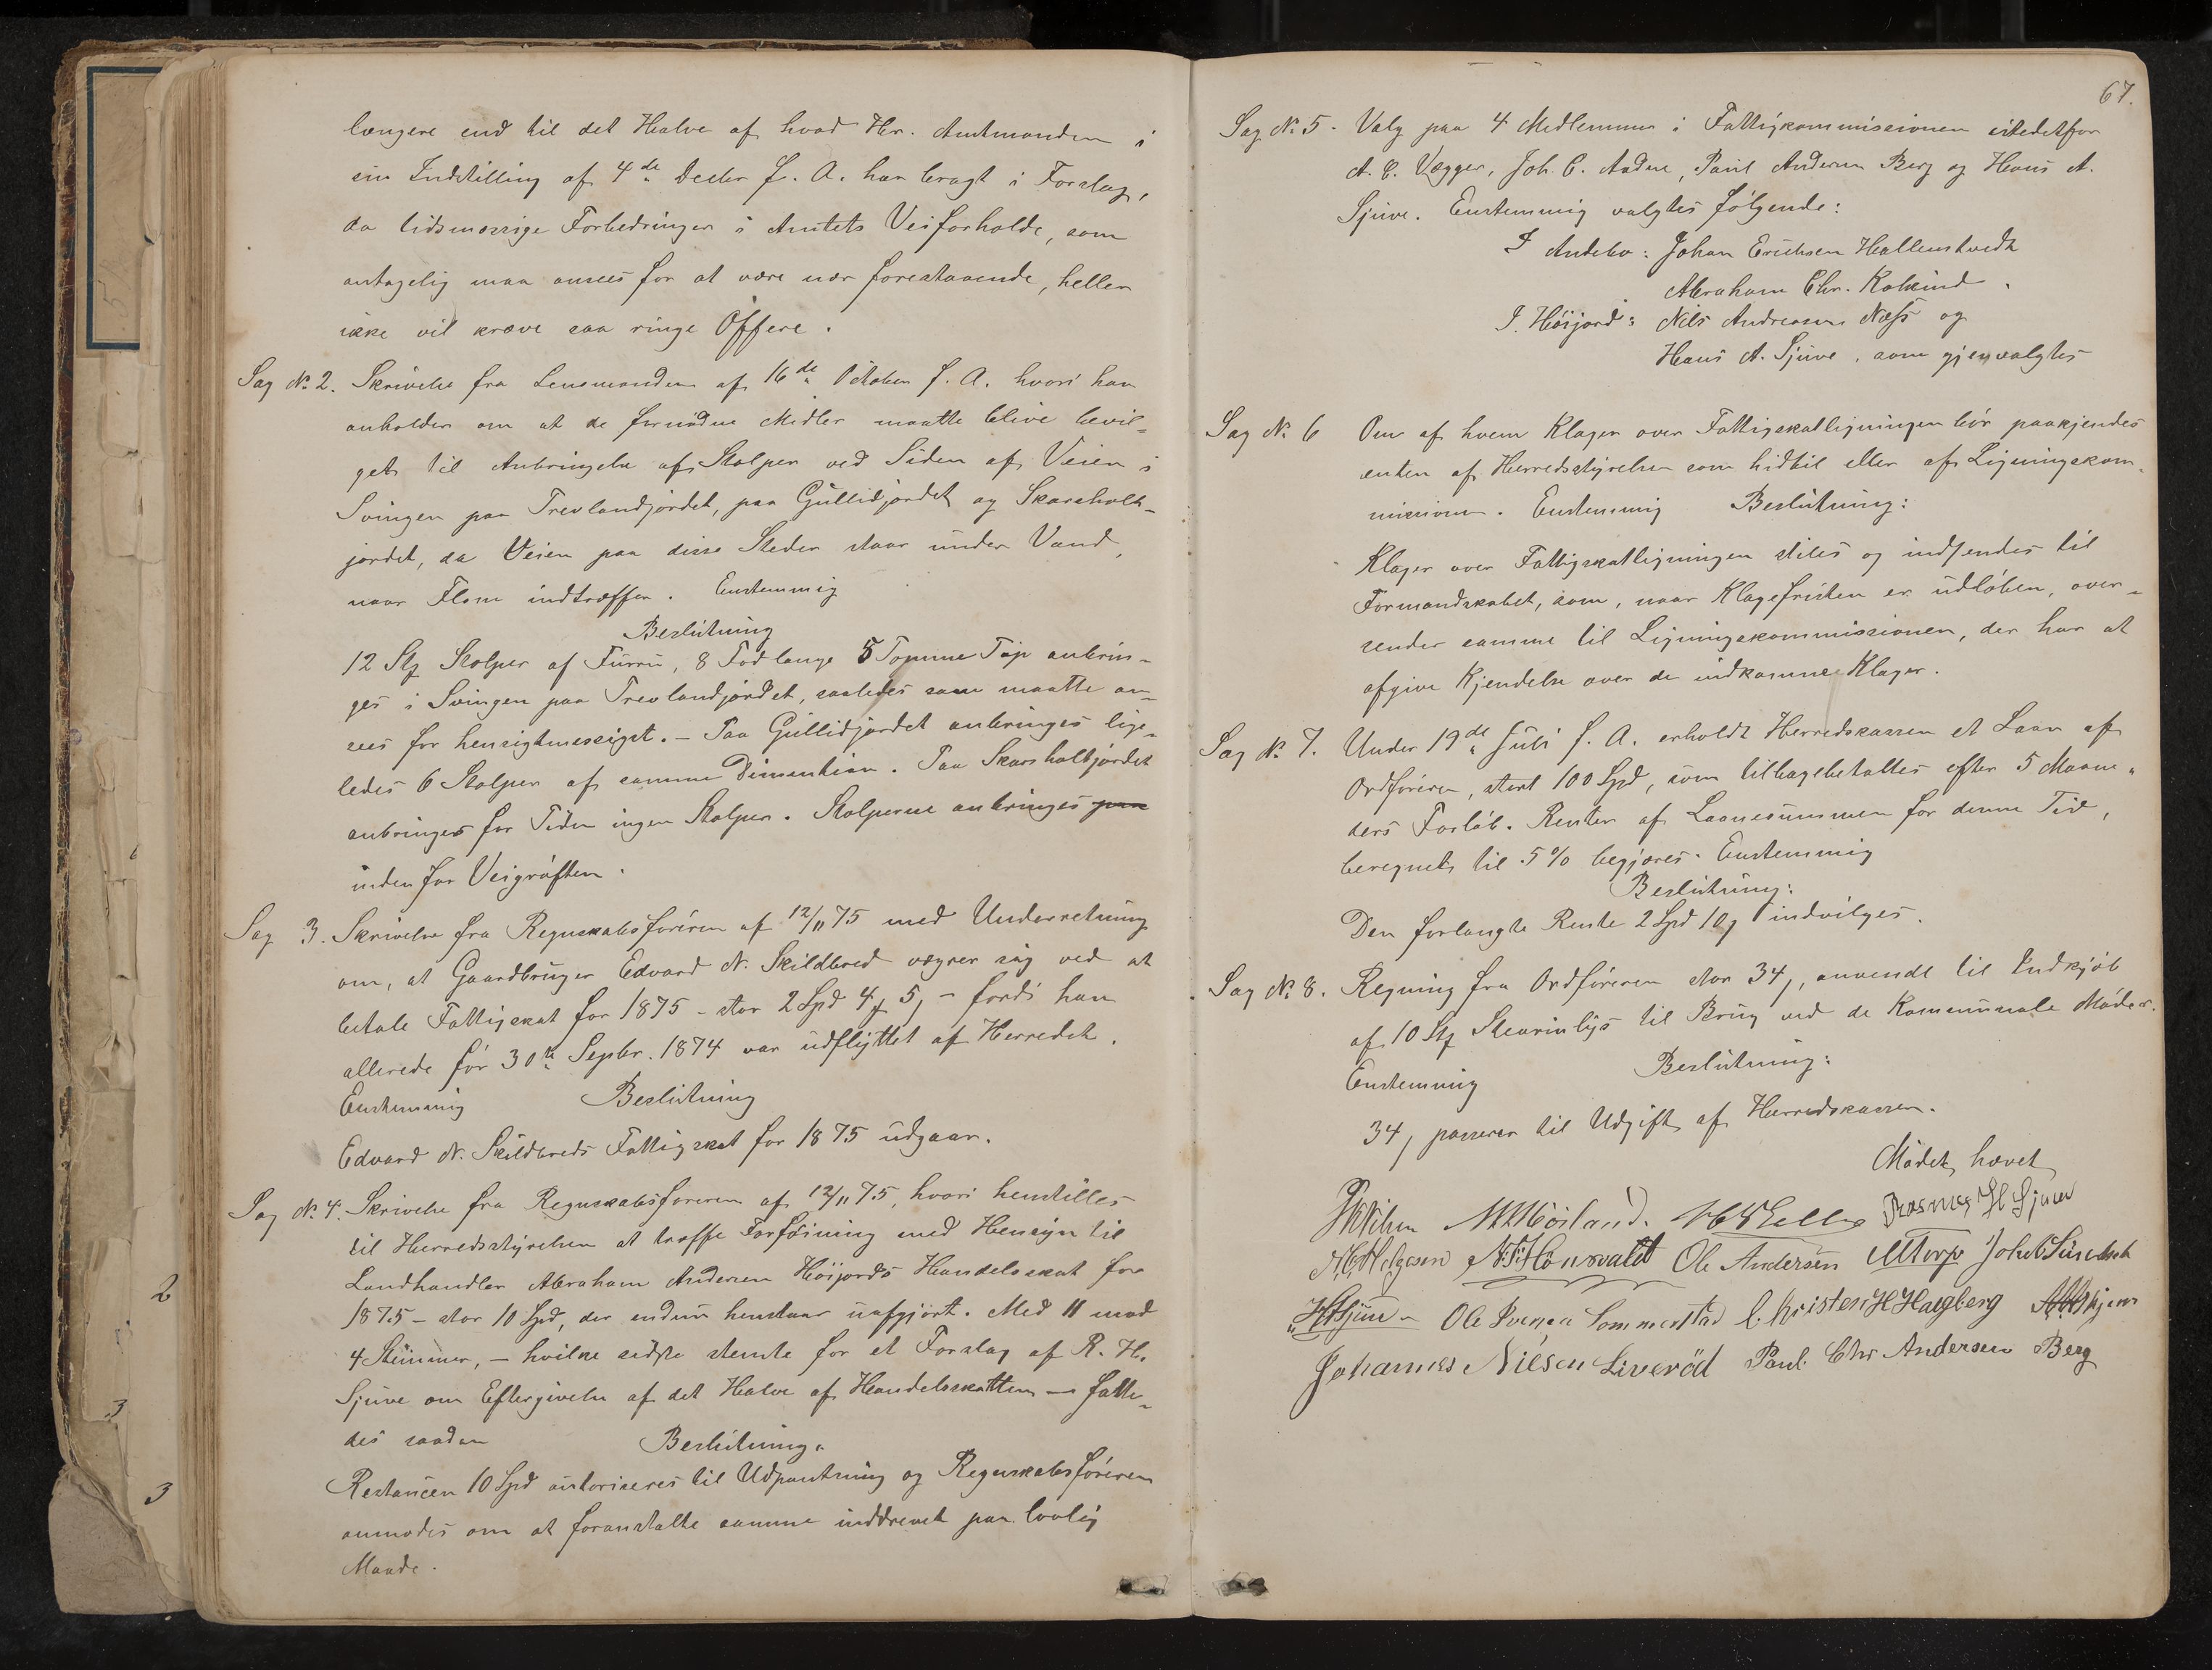 længere end til det Halve af hvad Hr. Amtmanden i
sin Indstilling af 4de Decbr f. A. har bragt i Forslag,
da tidsmæssige Forbedringer i Amtets Veiforholde, som
antagelig maa ansees for at være nær forestaaende, heller
ikke vil kræve saa ringe Offere.
Sag No. 2. Skrivelse fra Lensmanden af 16de October f. A. hvori han
anholder om at de fornødne Midler maatte blive bevil-
get til Anbringelse af Stolper ved Siden af Veien i
Svingen paa Trevlandjordet, paa Gullidjordet og Skarsholt-
jordet, da Veien paa disse Steder staar under Vand,
naar Flom indtræffer. Enstemmig
Beslutning
12 Stz Stolper af Furru, 8 Fod lange 5 Tomme Top anbrin-
ges i Svingen paa Trevlandjordet, saaledes som maatte an-
sees for hensigtmessigst. - Paa Gullidjordet anbringes lige-
ledes 6 Stolper af samme Dimention. Paa Skarsholtjordet
anbringes for Tiden ingen Stolper. Stolperne anbringes paa
inden for Veigrøften.
Sag 3. Skrivelse fra Regnskabsføreren af 12/11 75 med Underretning
om, at Gaardbruger Edvard N. Skildbred vægrer sig ved at
betale Fattigskat for 1875 - stor 2 Spd 4 5 - fordi han
allerede før 30te Septbr. 1874 var udflyttet af Herredet.
Enstemmig Beslutning
Edvard N. Skildbreds Fattigskat for 1875 udgaar.
Sag No. 4. Skrivelse fra Regnskabsføreren af 12/11 75, hvori henstilles
til Herredsstyrelsen at træffe Forføining med Hensyn til
Landhandler Abraham Andersen Høijords Handelsskat for
1875 - stor 10 Spd, der endnu henstaar uafgjort. Med 11 mod
4 Stemmer, - hvilke sidste stemte for et Forslag af R. H.
Sjuve om Eftergivelse af det Halve af Handelsskatten - fatte-
des saadan Beslutning.
Restancen 10 Spd autoriseres til Udpantning og Regnskabsføreren
anmodes om at foranstalte samme inddrevet paa lovlig
Maade.
2
3
3
67.
Sag No. 5. Valg paa 4 Medlemmer i Fattigkommissionen istedetfor
A. C. Vegger, Joh. C. Andne, Paul Andersen Berg og Hans A.
Sjuve. Enstemmig valgtes følgende:
I Andebo: Johan Erichsen Hallenstvedt
Abraham Chr. Kolkind.
I. Høijord: Nils Andreasen Næss og
Hans A. Sjuve, som gjenvalgtes
Sag No. 6 Om af hvem Klager over Fattigskatligningen bør paakjendes
enten af Herredsstyrelsen som hidtil eller af Ligningskom-
missionen. Enstemmig Beslutning:
Klager over Fattigskatligningen stiles og indsendes til
Formandskabet, som, naar Klagefristen er udløben, over-
sender samme til Ligningskommissionen, der har at
afgive Kjendelse over de indkomne Klager.
Sag No. 7. Under 19de Juli f. A. erholdt Herredskassen et Laan af
Ordføreren, stort 100 Spd, som tilbagebetaltes efter 5 Maane-
ders Forløb. Renter af Laanesummen for denne Tid,
beregnet til 5% begjæres. Enstemmig
Beslutning:
Den forlangte Rente 2 Spd 10 indvilges.
Sag No. 8. Regning fra Ordføreren stor 34, anvendt til Indkjøb
af 10 Stz Stearinlys til Brug ved de Kommunale Møder.
Enstemmig Beslutning:
34 passerer til Udgift af Herredskassen.
Mødet hævet
Rasmus H Sjuve
Ole Andersen MTorp
HASjuve - Ole Svensen Sommerstad Christen H Haugberg
Johannes Nilsen Liverød Paul Chr Andersen Berg